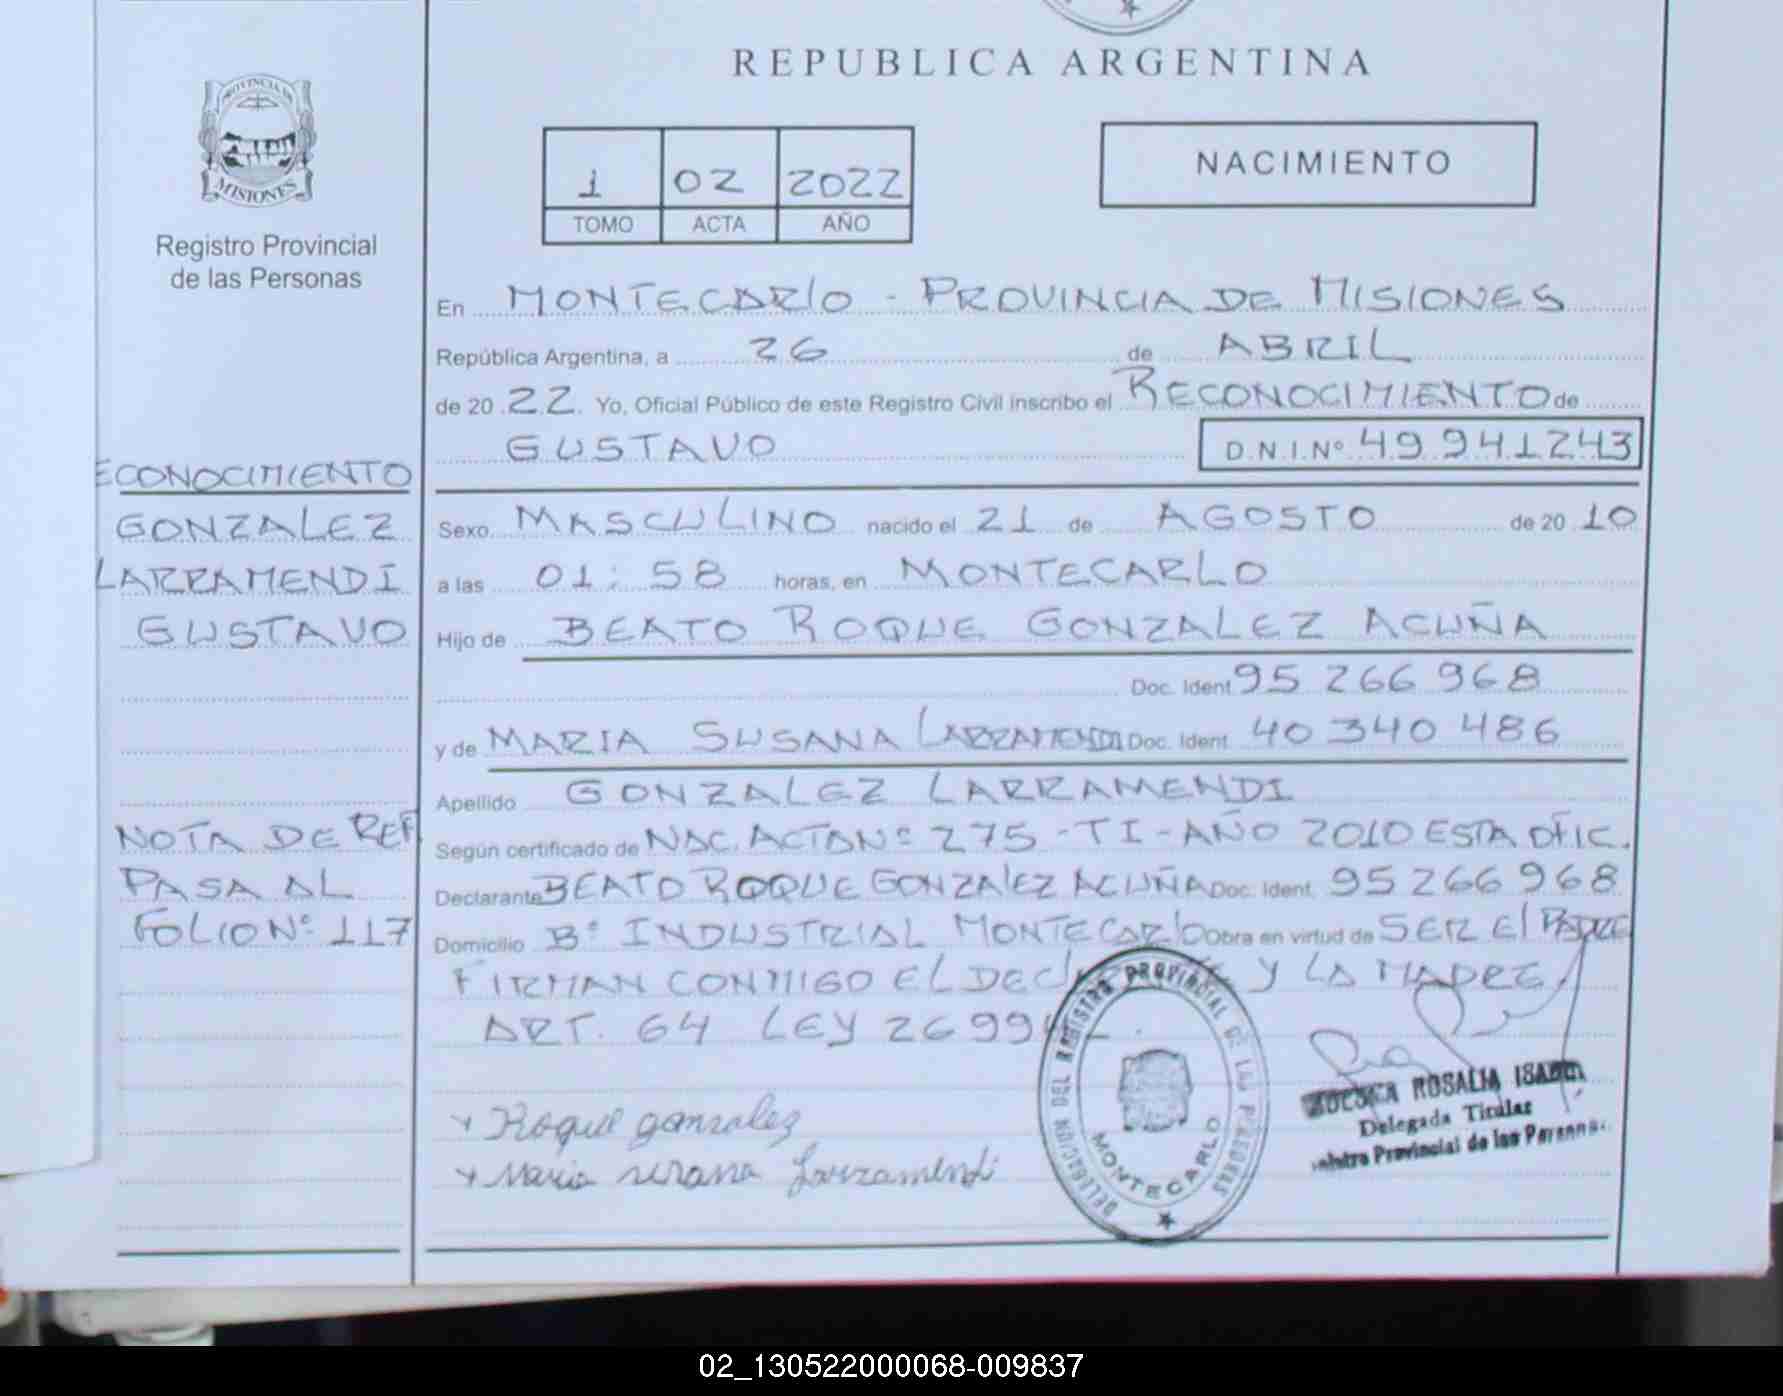 REPUBLICA ARGENTINA
PROVINCIA DE
MISIONES
Registro Provincial
de las Personas
1 02 2022
TOMO ACTA AÑO
NACIMIENTO
En MONTECARlO - PROVINCIA DE MISIONES
República Argentina, a 26 de ABRIL
de 20 22. Yo, Oficial Público de este Registro Civil inscribo el RECONOCIMIENTO de
GUSTAVO D.N.I.Nº 49941243
Sexo MASCULINO nacido el 21 de AGOSTO de 20 10
a las 01:58 horas, en MONTECARLO
Hijo de BEATO ROQUE GONZALEZ ACUÑA
Doc. Ident 95 266 968
y de MARIA SUSANA LARRAMENDI Doc. Ident 40 340 486
Apellido GONZALEZ LARRAMENDI
Según certificado de NAC. ACTA Nº 275 - TI - AÑO 2010 ESTA OFIC.
Declarante BEATO ROQUE GONZALEZ ACUÑA Doc. Ident. 95 266 968
Domicilio Bº INDUSTRIAL MONTECARlO Obra en virtud de SER El PADRE
FIRMAN CONMIGO EL Y LA MADRE
ART. 64 LEY
+ Roque gonzalez
+ Maria susana Larramendi
ECONOCIMIENTO
GONZALEZ
LARRAMENDI
GUSTAVO
NOTA DE REF
PASA AL
FOLIO Nº 117
DELEGACION DEL REGISTRO PROVINCIAL DE LAS PERSONAS
MONTECARLO
ROSALIA ISABEL
Delegada Titular
Provincial de las Personas
02_130522000068-009837